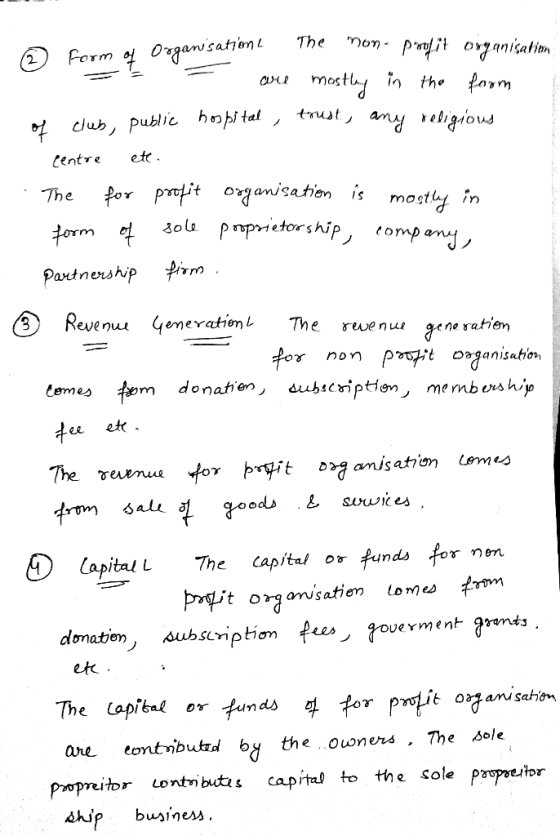 ② Form of Organisation :- The non-profit organisation
are mostly in the form
of club, public hospital, trust, any religious
centre etc.
The for profit organisation is mostly in
form of sole proprietorship, company,
Partnership firm.
③ Revenue Generation :- The revenue generation
for non profit organisation
comes from donation, subscription, membership
fee etc.
The revenue for profit organisation comes
from sale of goods & services.
④ Capital :- The capital or funds for non
profit organisation comes from
donation, subscription fees, goverment grants.
etc.
The capital or funds of for profit organisation
are contributed by the owners. The sole
propreitor contributes capital to the sole propreitor
ship business.